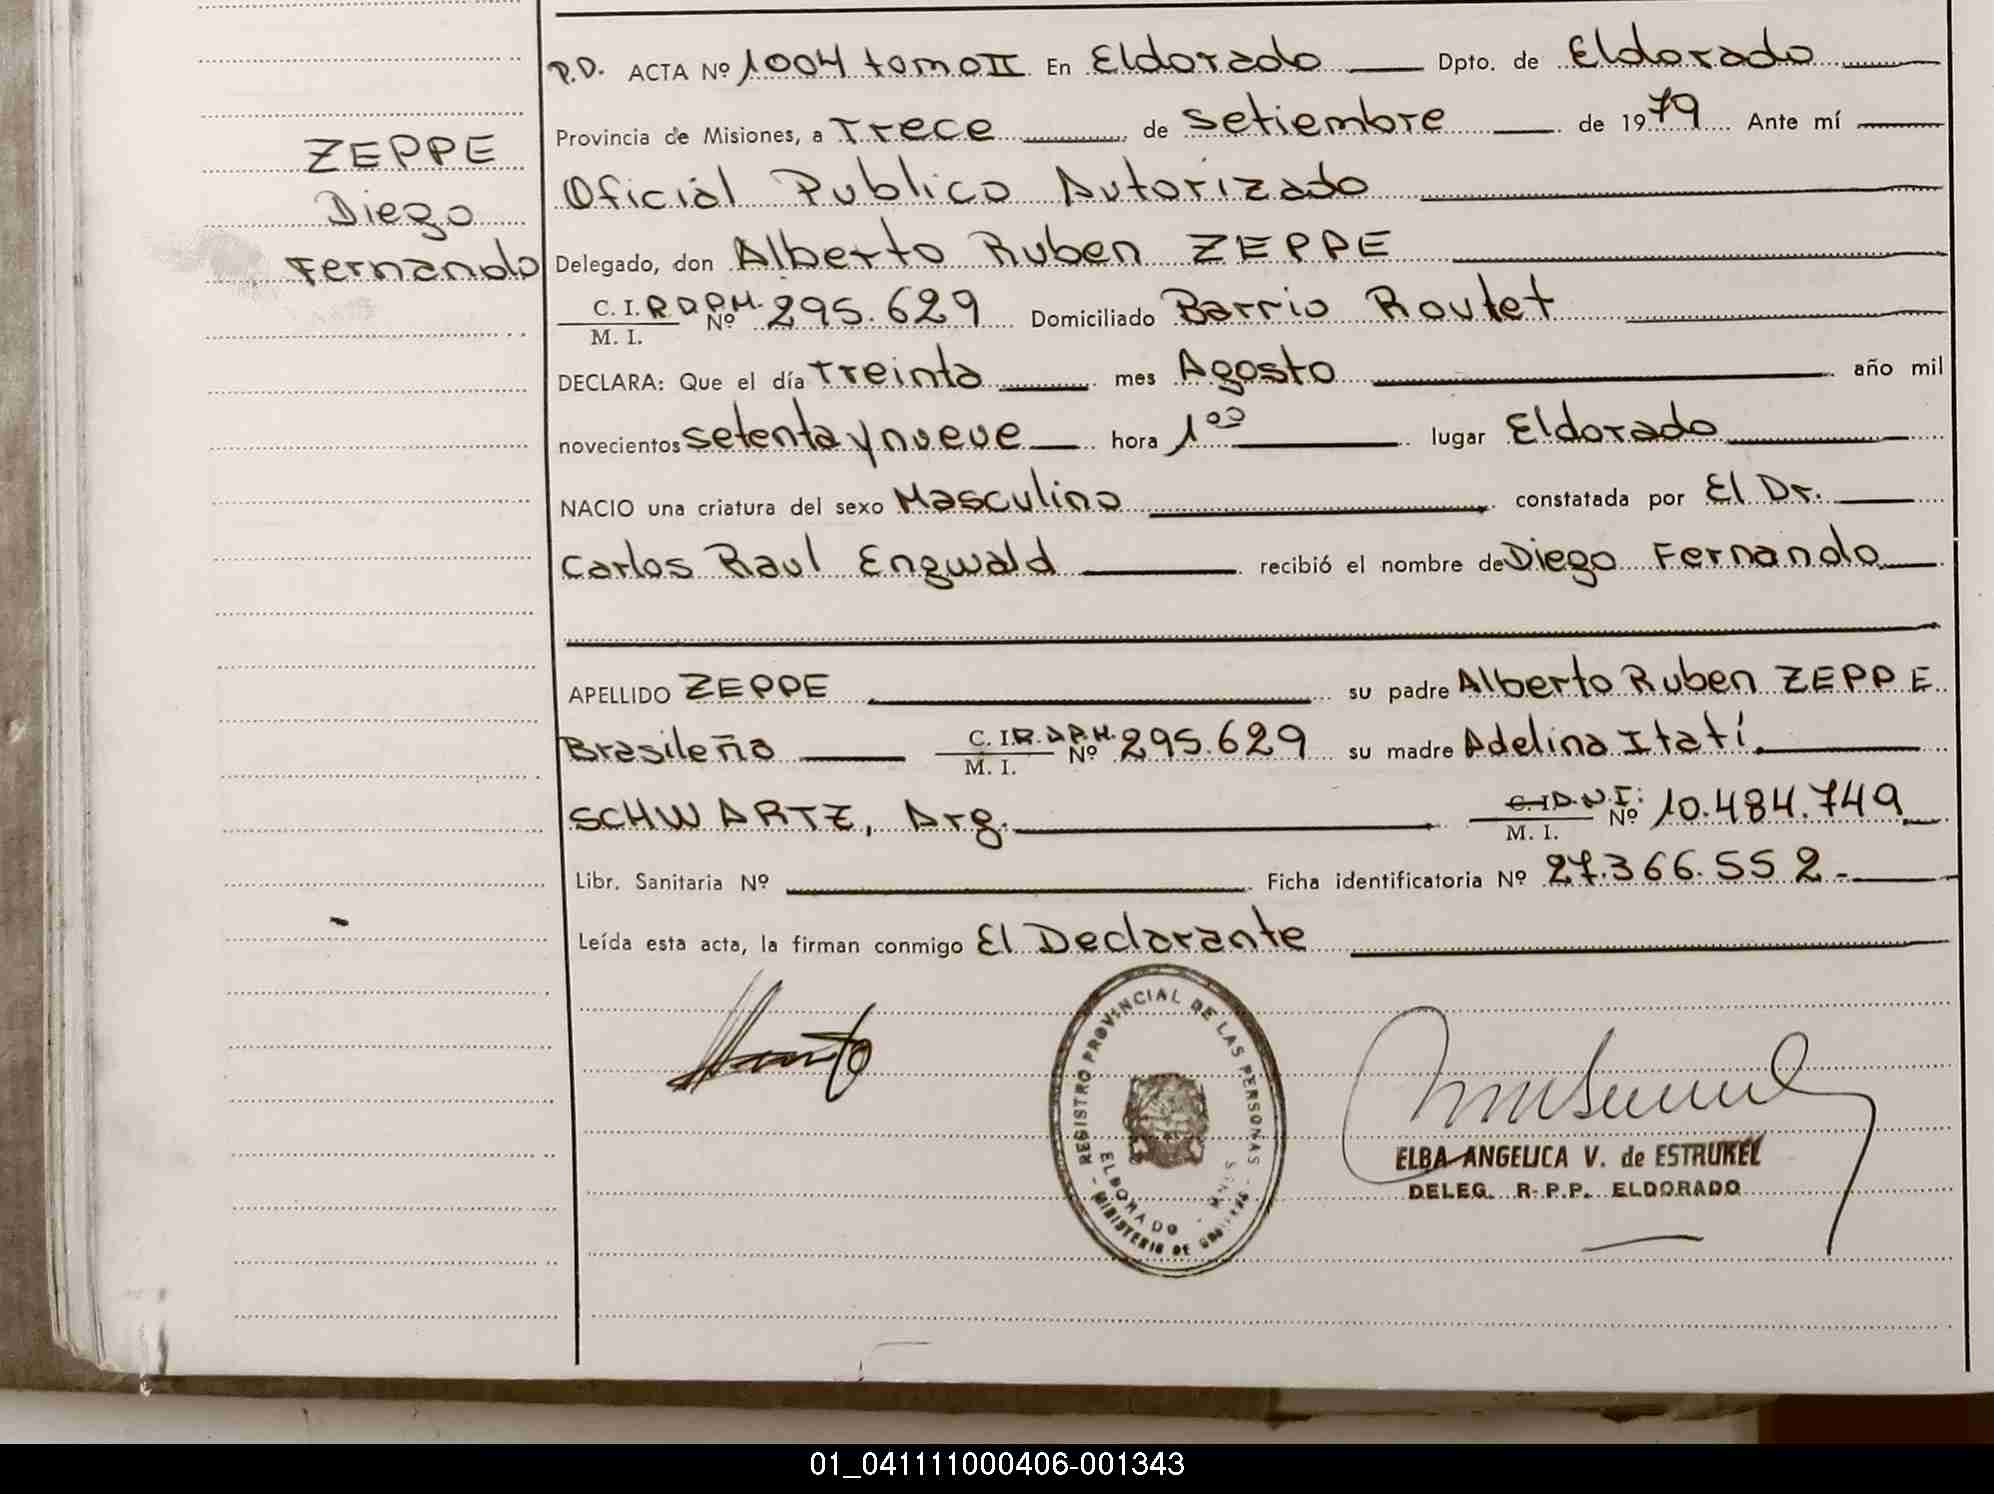 ZEPPE
Diego
Fernando
P.D. ACTA Nº 1004 tomo II En Eldorado Dpto. de Eldorado
Provincia de Misiones, a Trece de setiembre de 1979 Ante mí
Oficial Publico Autorizado
Delegado, don Alberto Ruben ZEPPE
C. I. R.D.P.M. Nº 295.629 Domiciliado Barrio Roulet
M. I.
DECLARA: Que el día Treinta mes Agosto año mil
novecientos setenta y nueve hora 1⁰⁰ lugar Eldorado
NACIO una criatura del sexo Masculino constatada por El Dr.
Carlos Raul Engwald recibió el nombre de Diego Fernando
APELLIDO ZEPPE su padre Alberto Ruben ZEPPE
Brasileño C. I. R.D.P.M. Nº 295.629 su madre Adelina Itatí
M. I.
SCHWARTZ, Arg. C. I. D.N.I: Nº 10.484.749
M. I.
Libr. Sanitaria Nº Ficha identificatoria Nº 27.366.552-
Leída esta acta, la firman conmigo El Declarante
REGISTRO PROVINCIAL DE LAS PERSONAS
ELDORADO - MNES
- MINISTERIO DE GOBIERNO -
ELBA ANGELICA V. de ESTRUKEL
DELEG. R.P.P. ELDORADO
01_041111000406-001343